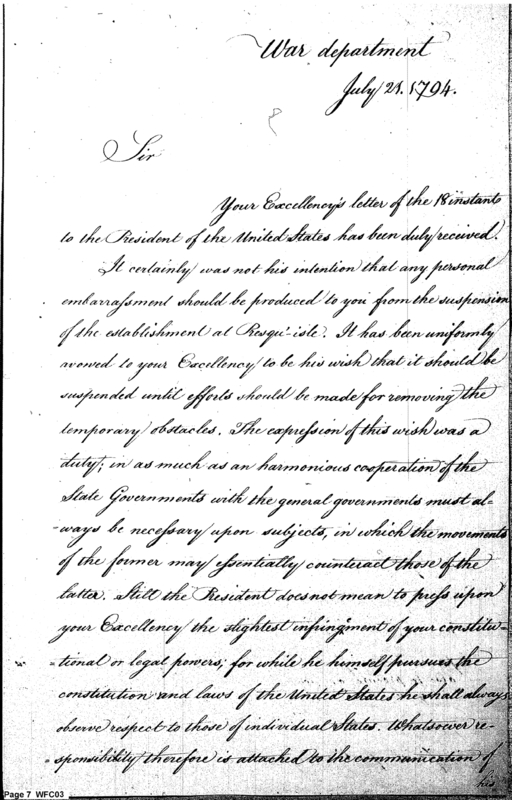 War department
July 21. 1794.
Sir
Your Excellency's letter of the 18 instant
to the President of the United States has been duly received.
It certainly was not his intention that any personal
embarrassment should be produced to you from the suspension
of the establishment at Presqu'-isle. It has been uniformly
avowed to your Excellency to be his wish that it should be
suspended until efforts should be made for removing the
temporary obstacles. The expression of this wish was a
duty; in as much as an harmonious cooperation of the
State Governments with the general governments must al-
-ways be necessary upon subjects, in which the movements
of the former may essentially counteract those of the
latter. Still the President does not mean to press upon
your Excellency the slightest infringment of your constitu-
-tional or legal powers; for while he himself pursues the
constitution and laws of the United States he shall always
observe respect to those of individual States. Whatsoever re-
-sponsibility therefore is attached to the communication of
his
Page 7 WFC03